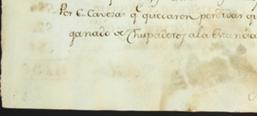 Por C. Cavezas q.e quecaron perdidas
ganado de Chupaderos a la Estancia